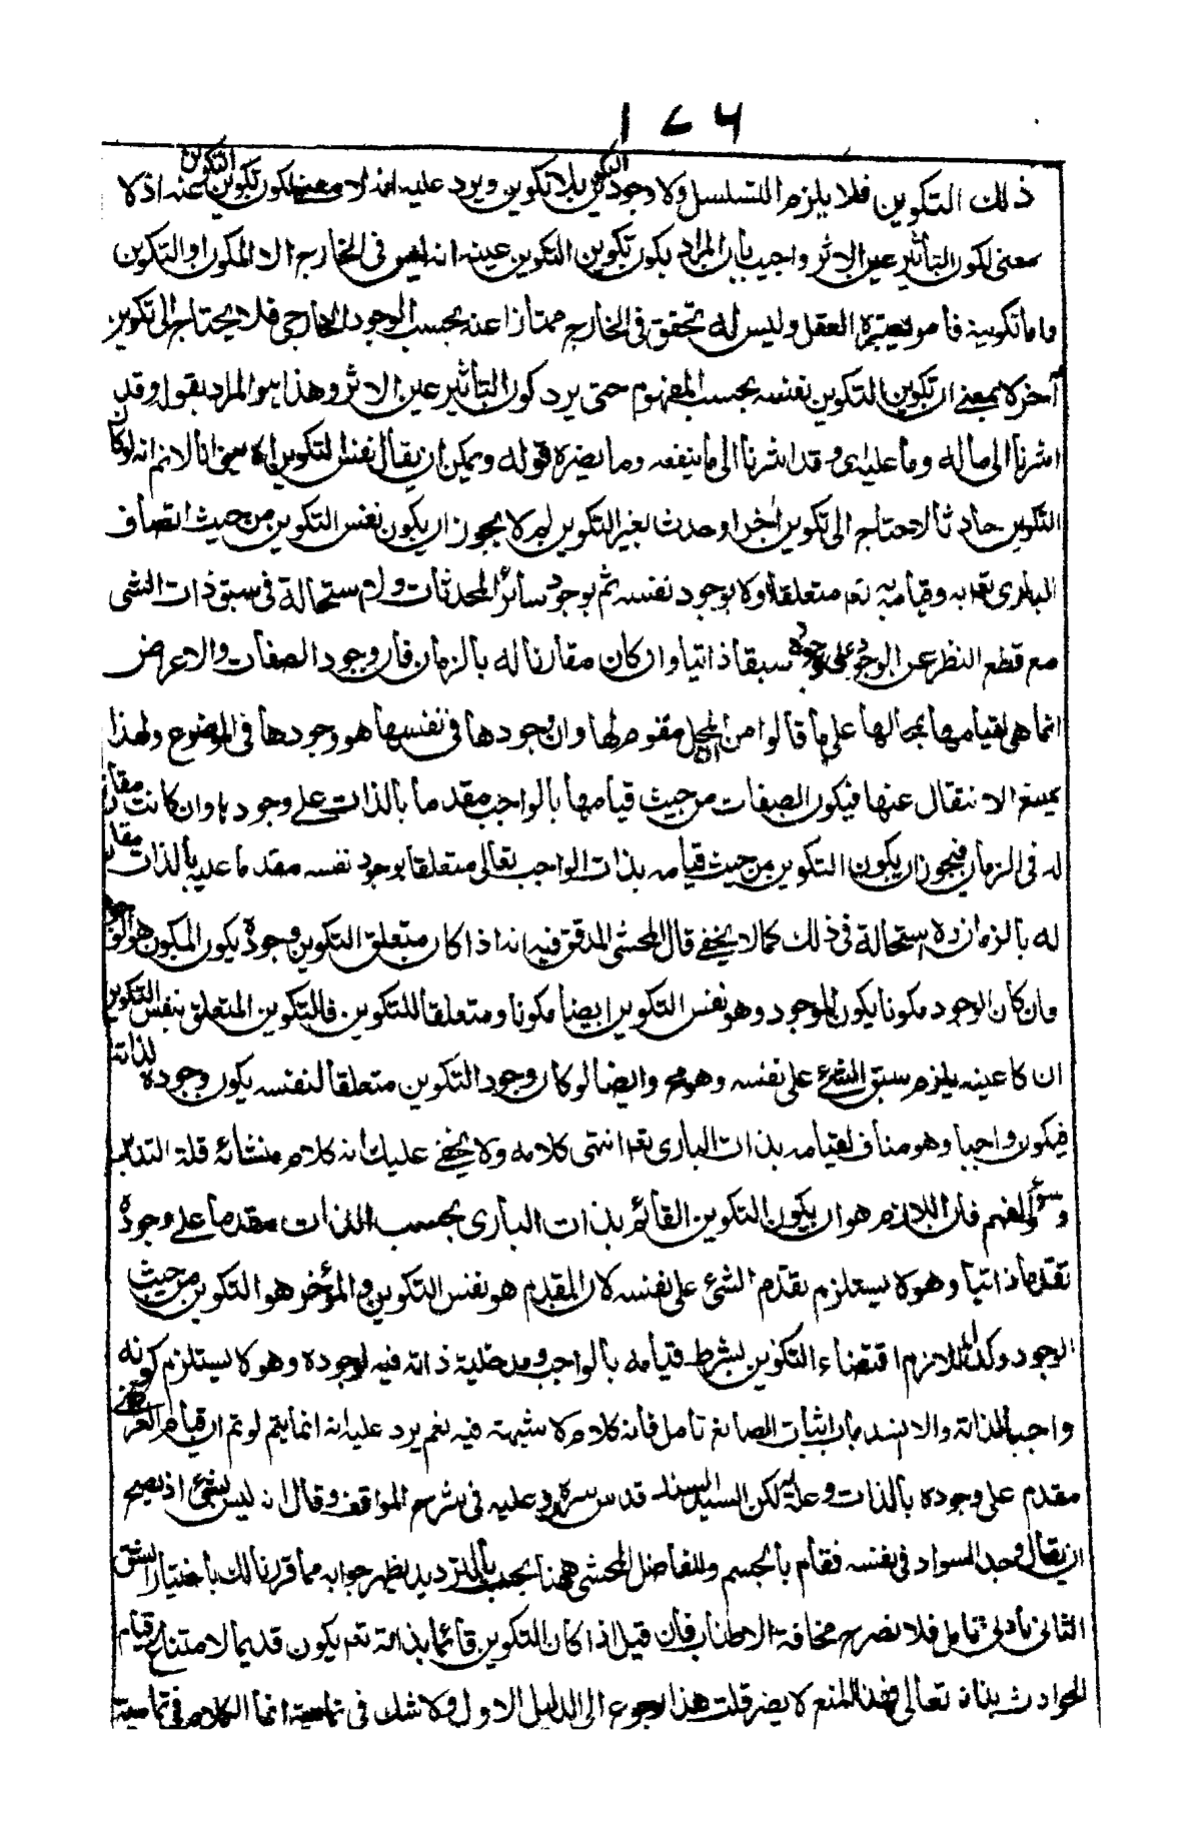 ١٧٦
ذلك التكوين فلا يلزم التسلسل ولا وجود التكوين بلا تكوين ويرد عليه انه لا معنى لكون تكوين التكوين عينه اذ لا
معنى لكون التأثير عين الاثر واجيب بان المراد بكون تكوين التكوين عينه انه ليس فى الخارج الا المكون والتكوين
واما تكوينه فامر يعتبره العقل وليس له تحقق فى الخارج ممتازا عنه بحسب الوجود الخارجى فلا يحتاج الى تكوين
آخر لا بمعنى ان تكوين التكوين نفسه بحسب المفهوم حتى يرد كون التأثير عين الاثر وهذا هو المراد بقوله وقد
اشرنا الى ماله وما عليه اى وقد اشرنا الى ما ينفعه وما يضره قوله ويمكن ان يقال نفس التكوين اه يعنى انا لا نم انه لو كان
التكوين حادثا لاحتاج الى تكوين اخر او حدث بغير التكوين لم لا يجوز ان يكون نفس التكوين من حيث اتصاف
البارى تعه به وقيامه به تعه متعلقا اولا بوجود نفسه ثم بوجود سائر المحدثات ولا استحالة فى سبق ذات الشى
مع قطع النظر عن الوجود على وجوده سبقا ذاتيا وان كان مقارنا له بالزمان فان وجود الصفات والاعراض
انما هى لقيامها بمحالها على ما قالوا من ان المحل مقوم لها وان وجودها فى نفسها هو وجودها فى الموضوع ولهذا
يمتنع الانتقال عنها فيكون الصفات من حيث قيامها بالواجب مقدما بالذات على وجودها وان كانت مقارنة
له فى الزمان فيجوز ان يكون التكوين من حيث قيامه بذات الواجب تعالى متعلقا بوجود نفسه مقدما عليه بالذات مقارنا
له بالزمان ولا استحالة فى ذلك كما لا يخفى قال المحشى المدقق فيه انه اذا كان متعلق التكوين وجوده يكون المكون هو الوجود
وان كان الوجود مكونا يكون الموجود وهو نفس التكوين ايضا مكونا ومتعلقا للتكوين فالتكوين المتعلق بنفس التكوين
ان كا عينه يلزم سبق الشئ على نفسه وهو مح وايضا لو كان وجود التكوين متعلقا لنفسه يكون وجوده لذاته
فيكون واجبا وهو مناف لقيامه بذات البارى تعه انتهى كلامه ولا يخفى عليك انه كلام منشائه قلة التدبر
وسوء الفهم فان اللازم هو ان يكون التكوين القائم بذات البارى بحسب الذات مقدما على وجوده
تقدما ذاتيا وهو لا يستلزم تقدم الشئ على نفسه لان المقدم هو نفس التكوين والمؤخر هو التكوين من حيث
الوجود وكذا اللازم اقتضاء التكوين بشرط قيامه بالواجب ومدخلية ذاته فيه لوجوده وهو لا يستلزم كونه
واجبا لذاته والا لانسد باب اثبات الصانع تامل فانه كلام لا شبهة فيه نعم يرد عليه انه انما يتم لو تم ان قيام العرض
مقدم على وجوده بالذات وعلة له لكن السيد السند قدس سره رد عليه فى شرح المواقف وقال انه ليس بشئ اذ يصح
ان يقال وجد السواد فى نفسه فقام بالجسم وللفاضل المحشى ههنا بحث بالترديد يظهر جوابه مما قررنا لك باختيار الشق
الثانى بادنى تامل فلا نصرح مخافة الاطناب فان قيل اذا كان التكوين قائما بذاته تعه يكون قديما لامتناع قيام
الحوادث بذاته تعالى فهذا المنع لا يضر قلت هذا رجوع الى الدليل الاول ولا شك فى تماميته انما الكلام فى تمامية